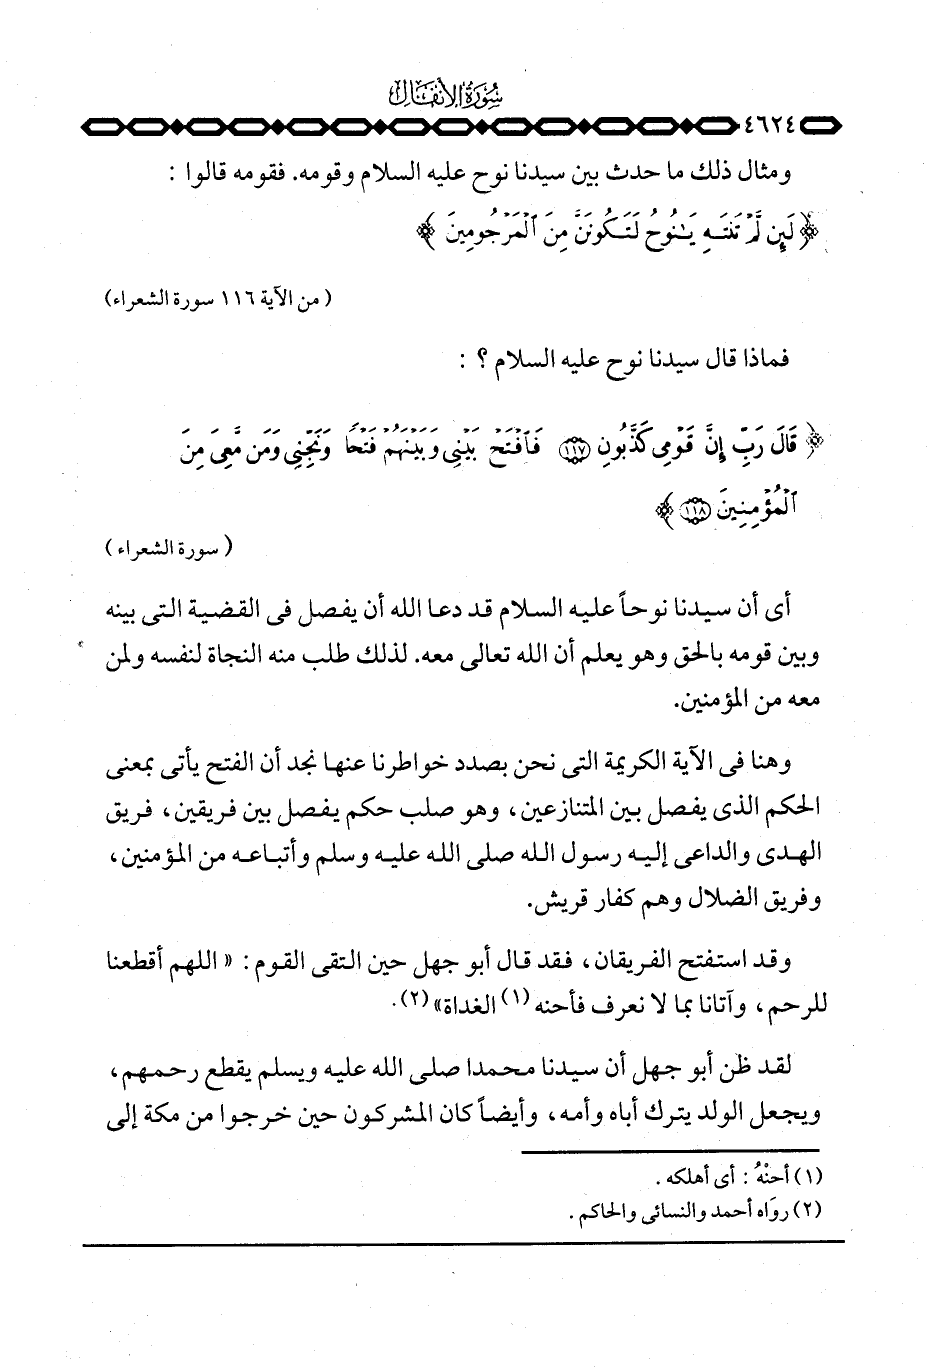 سورة الأنفال
٤٦٢٤
ومثال ذلك ما حدث بين سيدنا نوح عليه السلام وقومه. فقومه قالوا :
﴿ لَئِن لَّمْ تَنتَهِ يَـٰنُوحُ لَتَكُونَنَّ مِنَ ٱلْمَرْجُومِينَ ﴾
( من الآية ١١٦ سورة الشعراء)
فماذا قال سيدنا نوح عليه السلام ؟ :
﴿ قَالَ رَبِّ إِنَّ قَوْمِى كَذَّبُونِ ١١٧ فَٱفْتَحْ بَيْنِى وَبَيْنَهُمْ فَتْحًا وَنَجِّنِى وَمَن مَّعِىَ مِنَ
ٱلْمُؤْمِنِينَ ١١٨ ﴾
( سورة الشعراء )
أى أن سيدنا نوحاً عليه السلام قد دعا الله أن يفصل فى القضية التى بينه
وبين قومه بالحق وهو يعلم أن الله تعالى معه. لذلك طلب منه النجاة لنفسه ولمن
معه من المؤمنين.
وهنا فى الآية الكريمة التى نحن بصدد خواطرنا عنها نجد أن الفتح يأتى بمعنى
الحكم الذى يفصل بين المتنازعين، وهو صلب حكم يفصل بين فريقين، فريق
الهدى والداعى إليه رسول الله صلى الله عليه وسلم وأتباعه من المؤمنين،
وفريق الضلال وهم كفار قريش.
وقد استفتح الفريقان، فقد قال أبو جهل حين التقى القوم : « اللهم أقطعنا
للرحم، وآتانا بما لا نعرف فأحنه (١) الغداة» (٢).
لقد ظن أبو جهل أن سيدنا محمدا صلى الله عليه ويسلم يقطع رحمهم،
ويجعل الولد يترك أباه وأمه، وأيضاً كان المشركون حين خرجوا من مكة إلى
(١) أحنْهُ : أى أهلكه .
(٢) رواه أحمد والنسائى والحاكم .